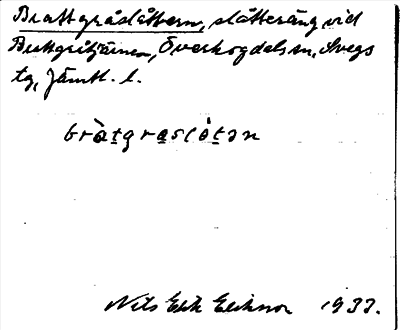 Brattgråslåttern, slåtteräng vid
Brattgråtjärnen, Överhogdals sn, Svegs
tg, Jämtl. l.
bràtgraslòtən
Nils Erik Eliasson 1937.